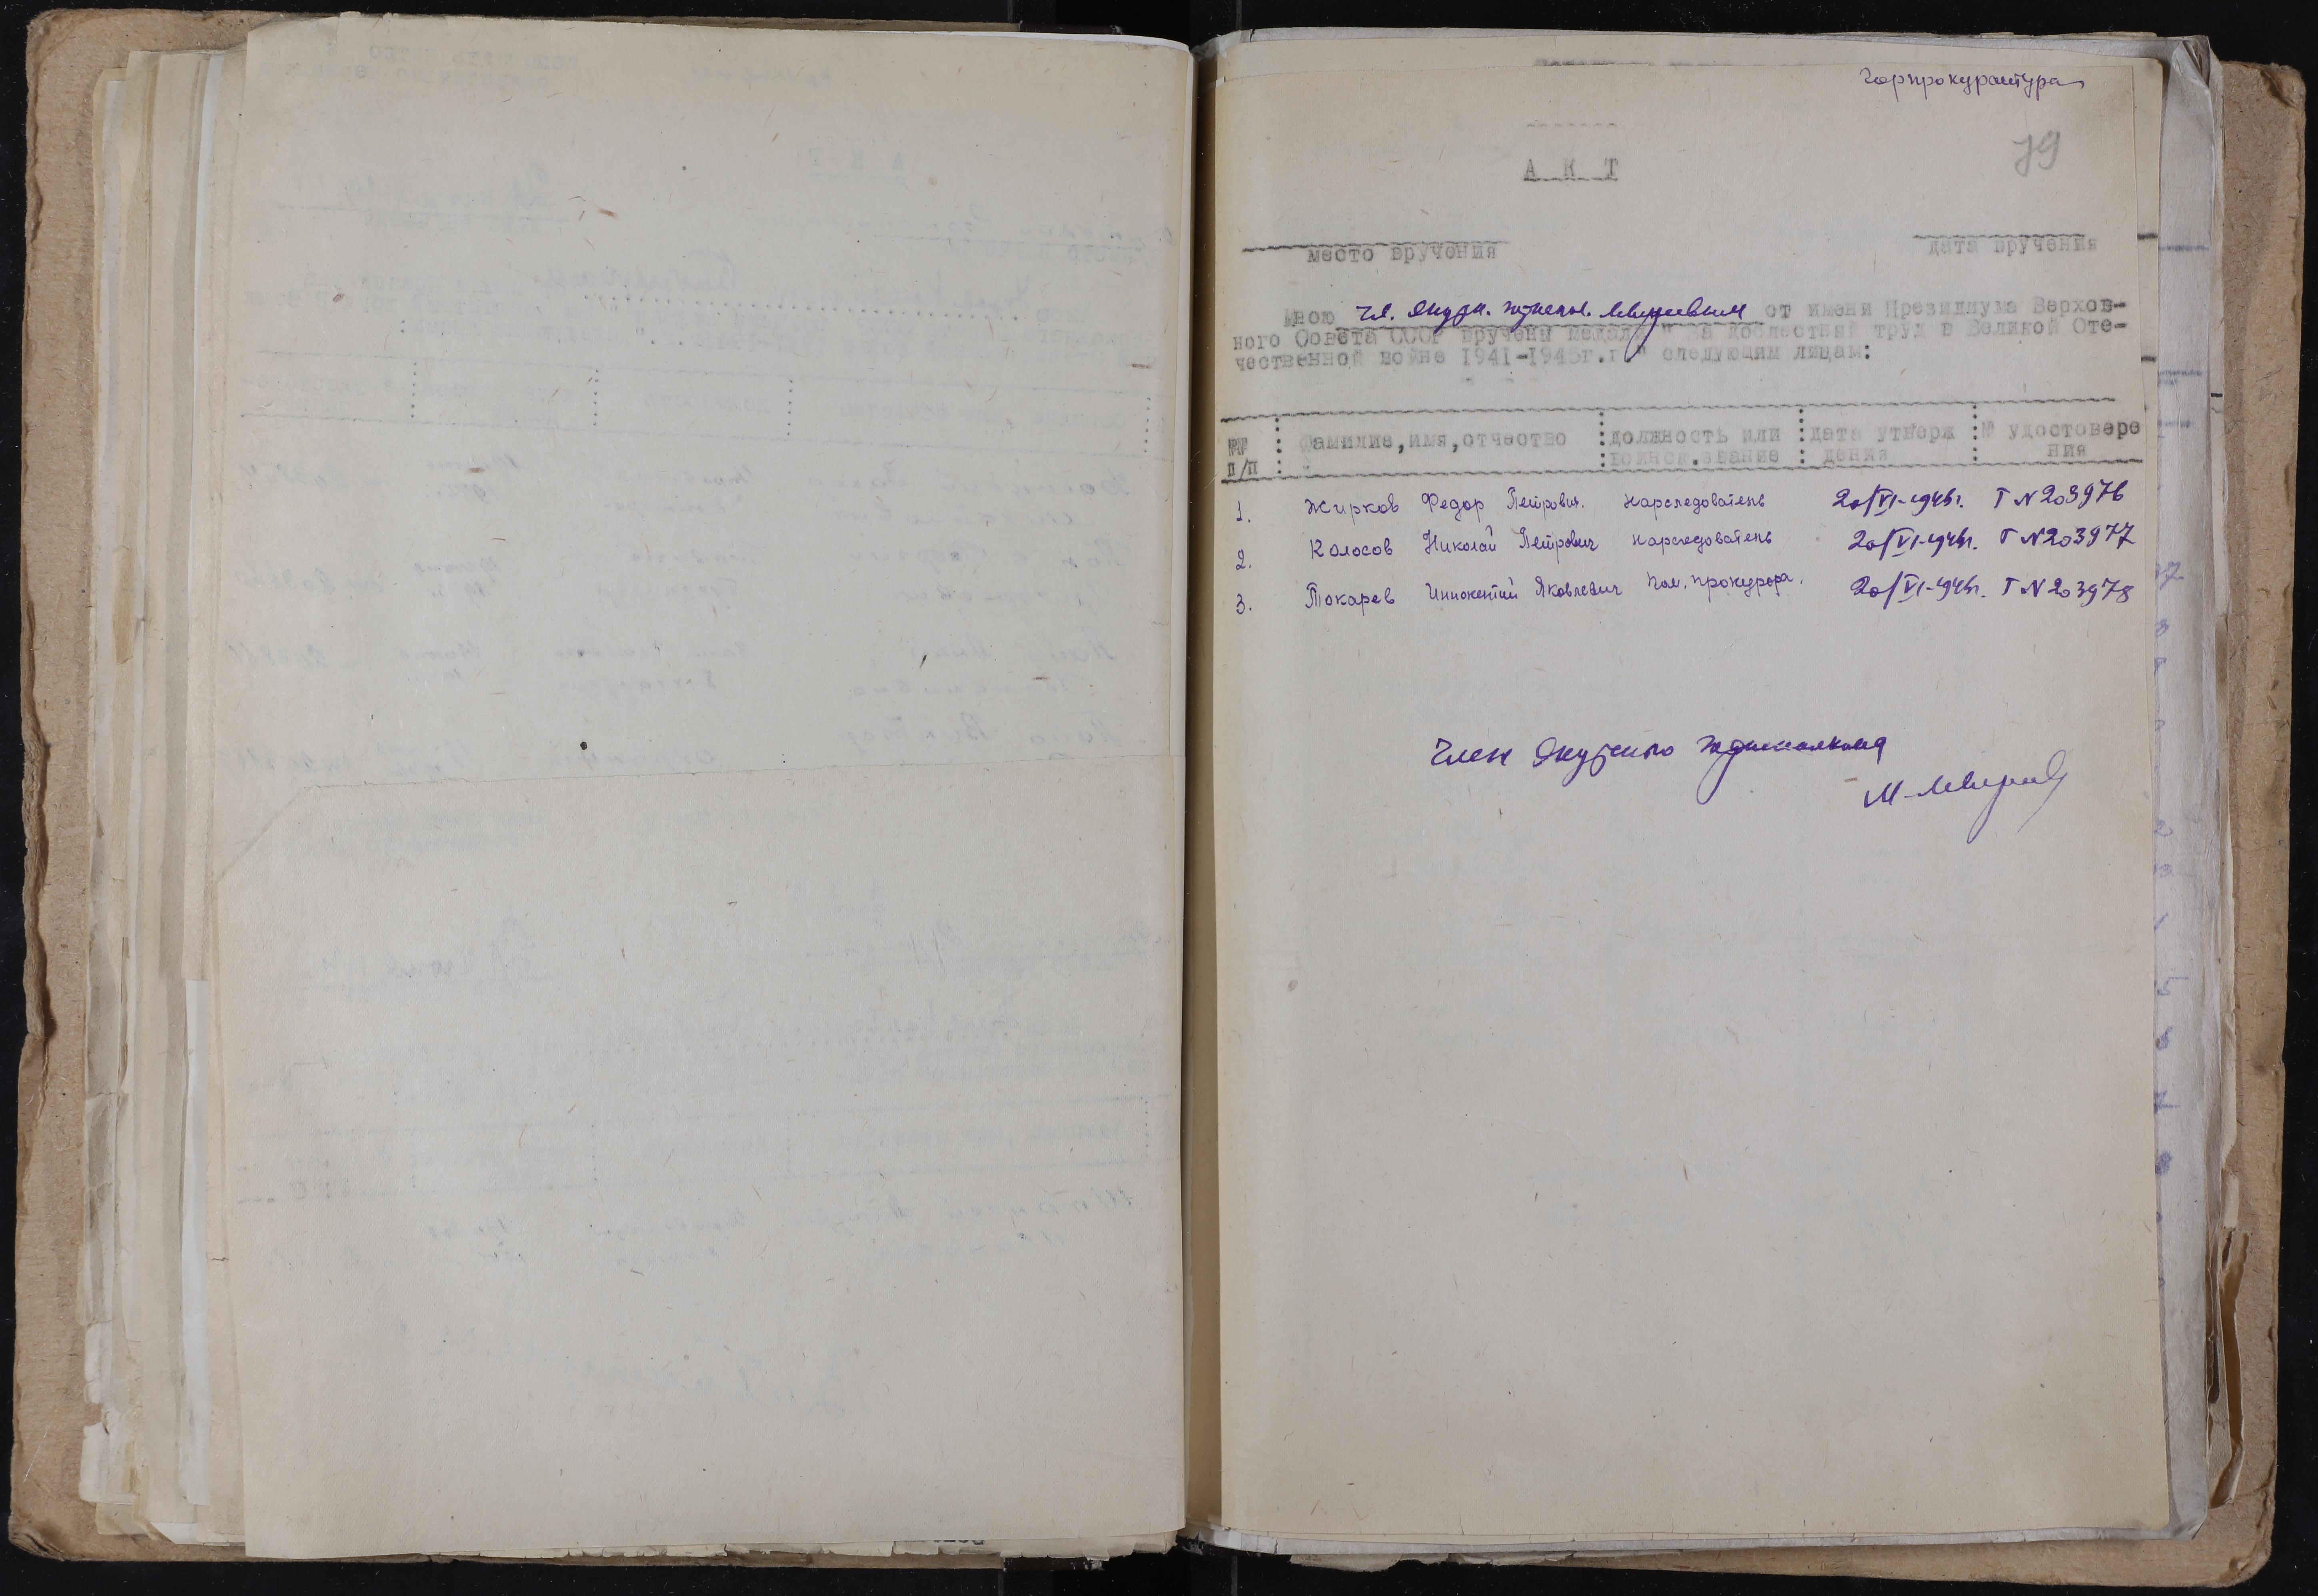 Горпрокуратура
79
А К Т
место вручения
дата вручения
Мною Чл. Якутск. от имени Президиума Верхов-
ного Совета СССР вручены медали " за доблестный труд в Великой Оте-
чественной войне 1941-1945г.г." следующим лицам:
№№ п/п : Фамилие,имя,отчество : должность или воинск.звание : дата утверждения : № удостоверения
1. Жирков Федор Петрович. нарследователь 20/VI-1946г. Т №203976
2. Колосов Николай Петрович нарследователь 20/VI-1946г. Т №203977
3. Токарев Иннокентий Яковлевич Пом. прокурора. 20/VI-1946г. Т №203978
Член Якутского
М.